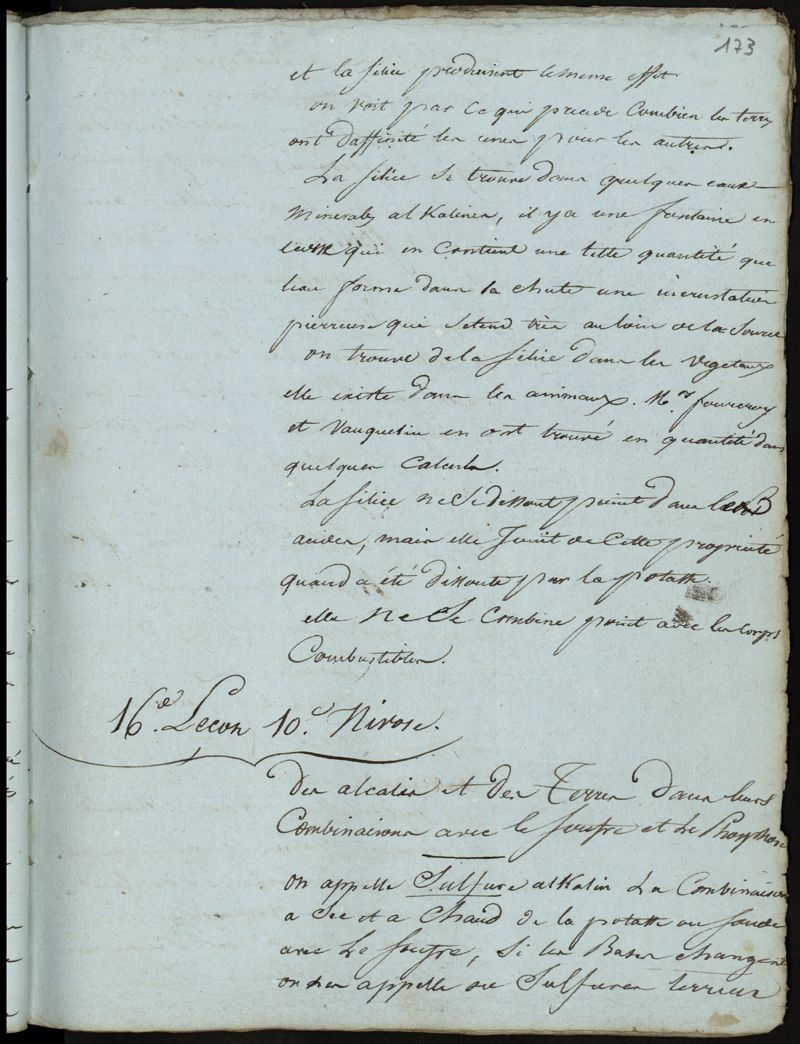 173
et la silice produisent le meme effet
on voit par ce qui precede Combien les terres
ont d'affinité les unes pour les autres.
La silice se trouve dans quelques eaux
Minerales alKalines, il y a une fontaine en
qui en Contient une telle quantité que
leau forme dans sa chute une incrustation
pierreuse qui setend très au loin de la Source
on trouve de la silice dans les vegetaux
elle existe dans les animaux. Mrs fourcroy
et Vauquelin en ont trouvé en quantité dans
quelques Calculs.
La silice ne se dissout point dans les
acides, mais elle Jouit de Cette propriété
quand a été dissoute par la potasse.
elle ne se Combine point avec les Corps
Combustibles.
16e. Lecon 10e. Nivose.
Des alcalis et des Terres dans leurs
Combinaisons avec le soufre et le Phosphore
on appelle Sulfure alKalin La Combinaison
a Sec et a Chaud de la potasse ou soude
avec Le soufre, Si les Bases changent
on les appelle ou Sulfures terreux